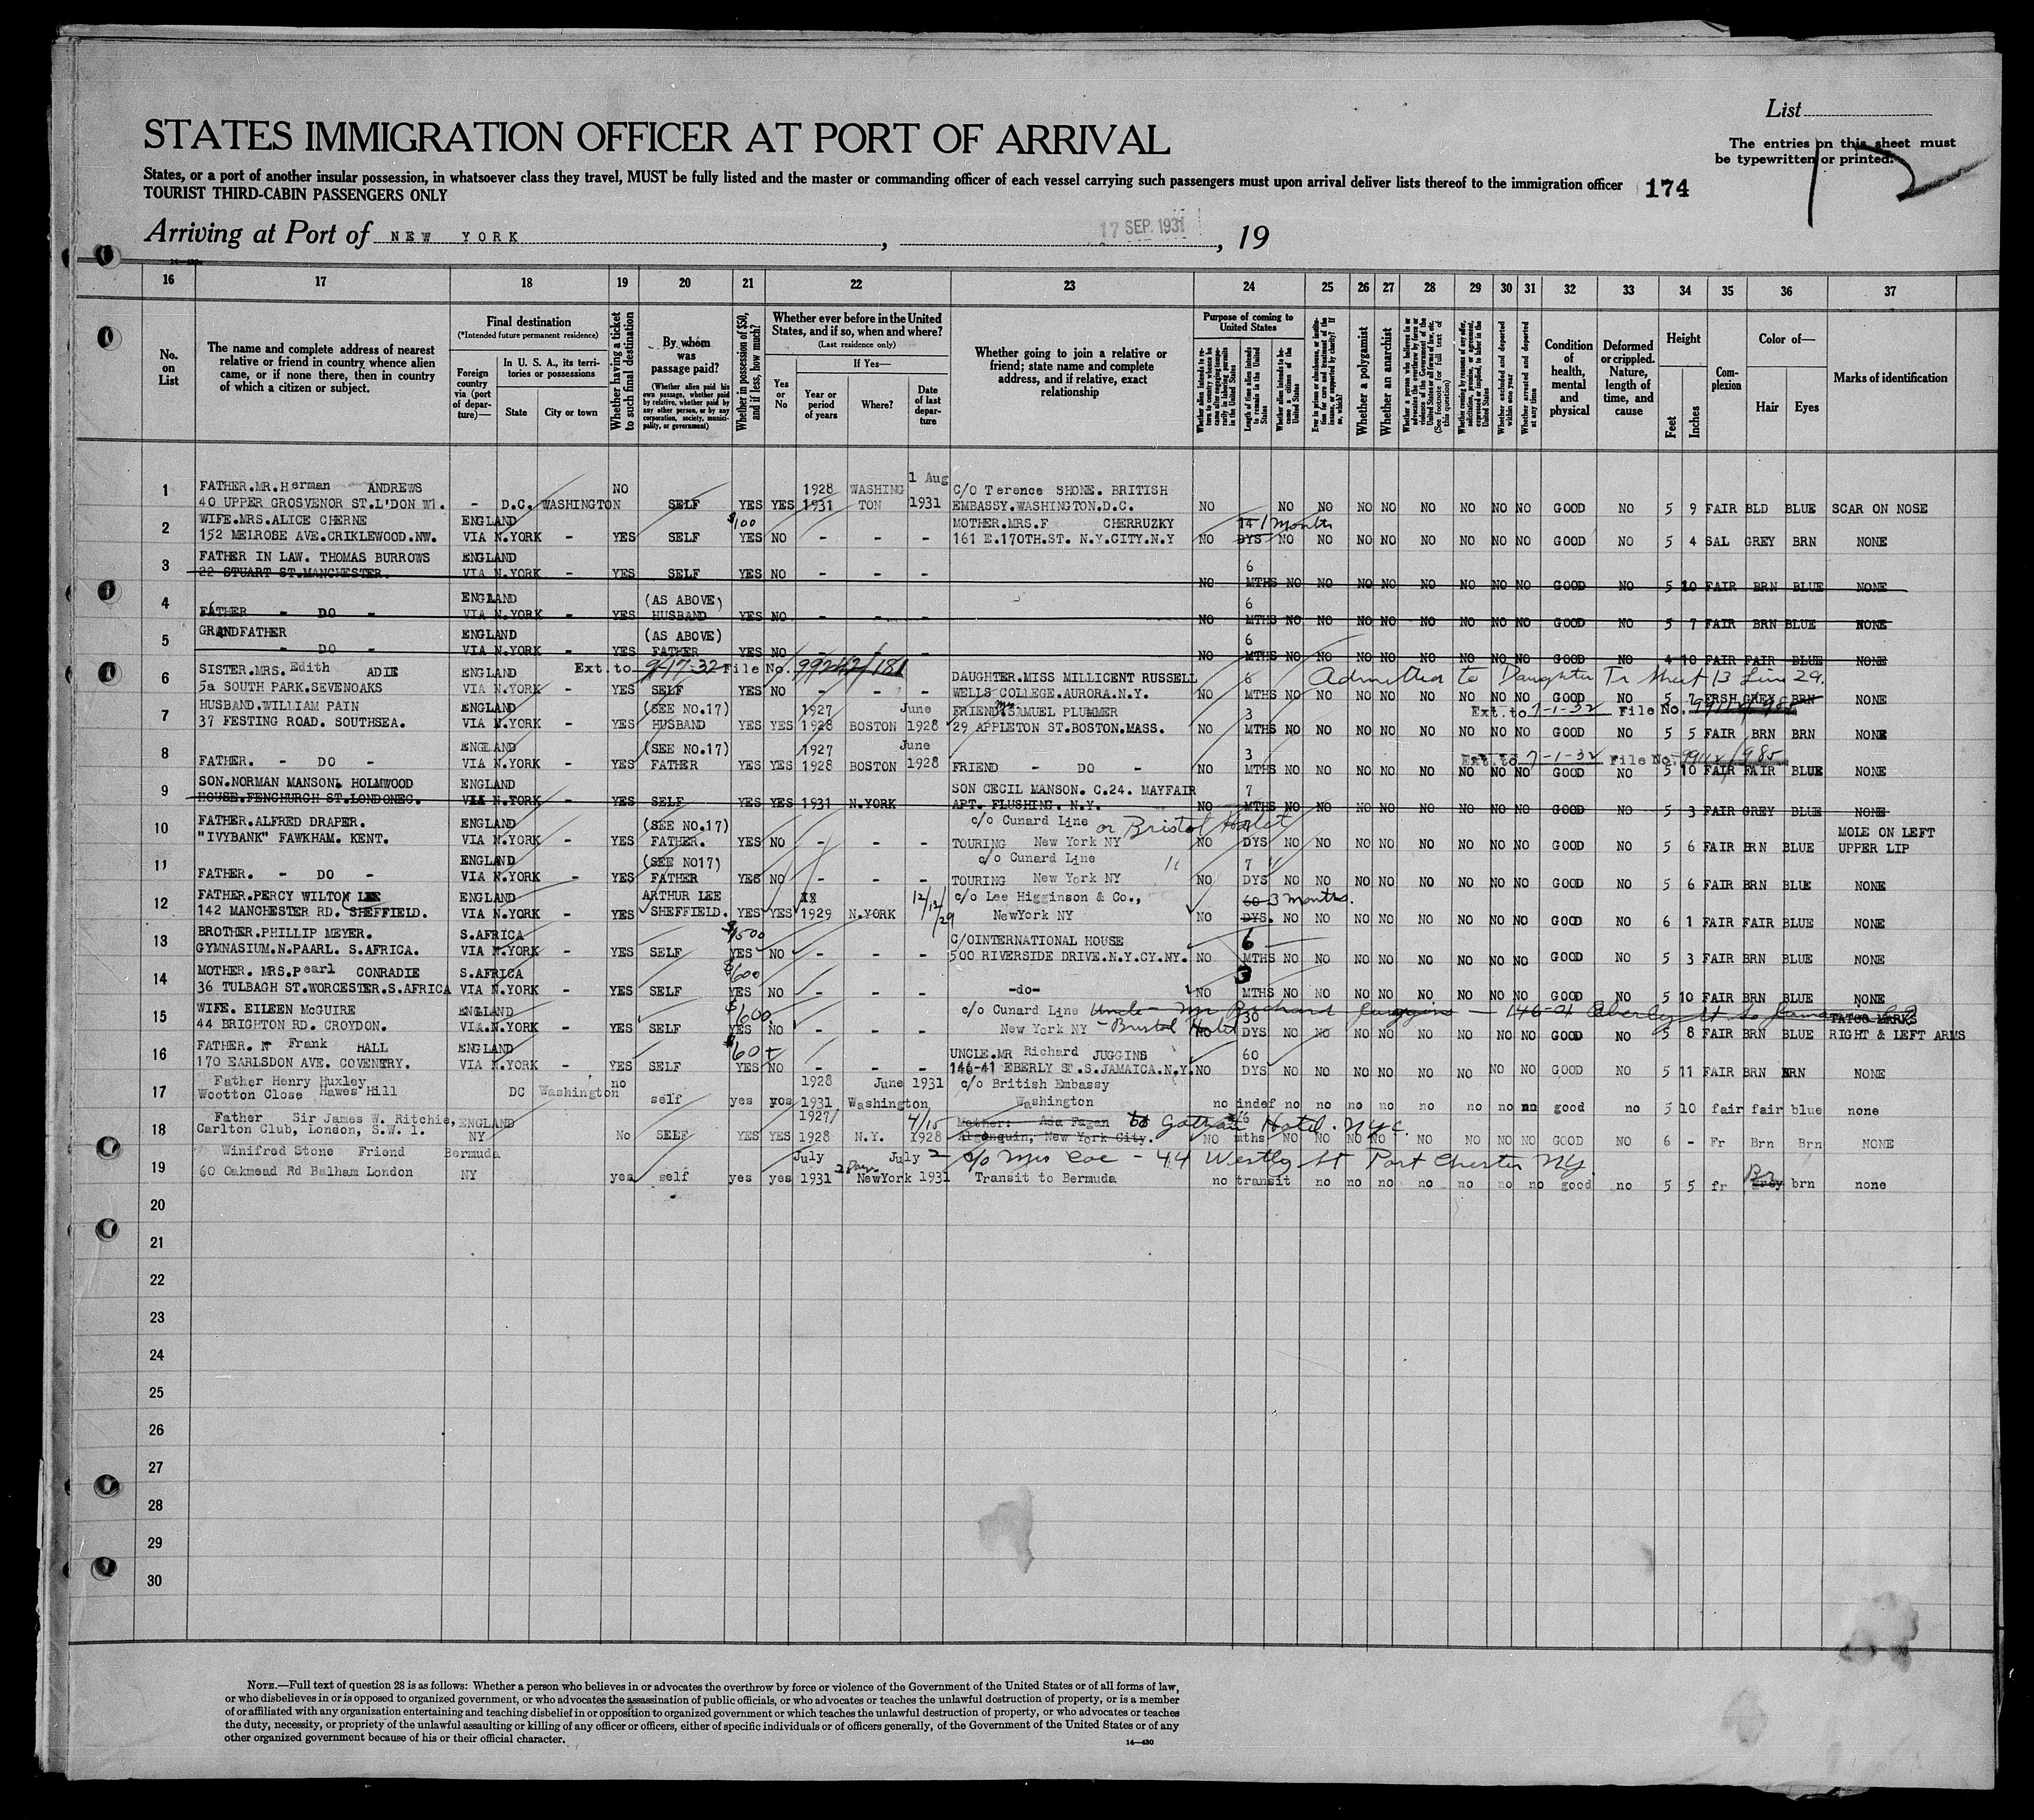 List
STATES IMMIGRATION OFFICER AT PORT OF ARRIVAL
The entries on this sheet must
be typewritten or printed.
12
States, or a port of another insular possession, in whatsoever class they travel, MUST be fully listed and the master or commanding officer of each vessel carrying such passengers must upon arrival deliver lists thereof to the immigration officer 174
TOURIST THIRD-CABIN PASSENGERS ONLY
Arriving at Port of NEW YORK , 17 SEP. 1931 , 19
16 17 18 19 20 21 22 23 24 25 26 27 28 29 30 31 32 33 34 35 36 37
No. on List
The name and complete address of nearest relative or friend in country whence alien came, or if none there, then in country of which a citizen or subject.
Final destination
(*Intended future permanent residence)
Foreign country via (port of departure)—
In U. S. A., its territories or possessions
State City or town
Whether having a ticket to such final destination
By whom was passage paid?
(Whether alien paid his own passage, whether paid by relative, whether paid by any other person, or by any corporation, society, municipality, or government)
Whether in possession of $50, and if less, how much?
Whether ever before in the United States, and if so, when and where?
(Last residence only)
Yes or No
If Yes—
Year or period of years Where? Date of last departure
Whether going to join a relative or friend; state name and complete address, and if relative, exact relationship
Purpose of coming to United States
Length of time alien intends to remain in the United States
Whether alien intends to become a citizen of the United States
Whether a polygamist
Whether an anarchist
Whether excluded and deported within one year
Whether arrested and deported at any time
Condition of health, mental and physical
Deformed or crippled. Nature, length of time, and cause
Height
Feet Inches
Complexion
Color of—
Hair Eyes
Marks of identification
1 FATHER.MR.Herman ANDREWS NO 1928 WASHING 1 Aug C/O Terence SHONE. BRITISH
40 UPPER GROSVENOR ST.L'DON W1. - D.C. WASHINGTON SELF YES YES 1931 TON 1931 EMBASSY.WASHINGTON.D.C. NO NO NO NO NO NO NO NO NO GOOD NO 5 9 FAIR BLD BLUE SCAR ON NOSE
2 WIFE.MRS.ALICE CHERNE ENGLAND $100 MOTHER.MRS.F CHERRUZKY 14 1 months
152 MELROSE AVE.CRIKLEWOOD.NW. VIA N.YORK - YES SELF YES NO - - - 161 E.170TH.ST. N.Y.CITY.N.Y NO DYS NO NO NO NO NO NO NO NO GOOD NO 5 4 SAL GREY BRN NONE
3 FATHER IN LAW. THOMAS BURROWS ENGLAND 6
22 STUART ST.MANCHESTER. VIA N.YORK - YES SELF YES NO - - - NO MTHS NO NO NO NO NO NO NO NO GOOD NO 5 10 FAIR BRN BLUE NONE
4 ENGLAND (AS ABOVE) 6
FATHER - DO - VIA N.YORK - YES HUSBAND YES NO - - - NO MTHS NO NO NO NO NO NO NO NO GOOD NO 5 7 FAIR BRN BLUE NONE
5 GRANDFATHER ENGLAND (AS ABOVE) 6
- DO - VIA N.YORK - YES FATHER YES NO - - - NO MTHS NO NO NO NO NO NO NO NO GOOD NO 4 10 FAIR FAIR BLUE NONE
Ext. to 9/17-32 File No.
6 SISTER.MRS. Edith ADIE ENGLAND DAUGHTER.MISS MILLICENT RUSSELL 6 Admitted to Daughter Tr Sheet 13 Line 29.
5a SOUTH PARK.SEVENOAKS VIA N.YORK - YES SELF YES NO - - - WELLS COLLEGE.AURORA.N.Y. NO MTHS NO NO NO NO NO NO NO NO GOOD NO 5 7 FRSH GREY BRN NONE
7 HUSBAND.WILLIAM PAIN ENGLAND (SEE NO.17) 1927 June FRIEND Mr SAMUEL PLUMMER 3 Ext. to 7-1-32 File No.
37 FESTING ROAD. SOUTHSEA. VIA N.YORK - YES HUSBAND YES YES 1928 BOSTON 1928 29 APPLETON ST.BOSTON.MASS. NO MTHS NO NO NO NO NO NO NO NO GOOD NO 5 5 FAIR BRN BRN NONE
8 ENGLAND (SEE NO.17) 1927 June 3 Ext. to 7-1-32 File No.
FATHER. - DO - VIA N.YORK - YES FATHER YES YES 1928 BOSTON 1928 FRIEND - DO - NO MTHS NO NO NO NO NO NO NO NO GOOD NO 5 10 FAIR FAIR BLUE NONE
9 SON.NORMAN MANSON. HOLMWOOD ENGLAND SON CECIL MANSON. C.24. MAYFAIR 7
HOUSE.FENCHURCH ST.LONDONEC. VIA N.YORK - YES SELF YES YES 1931 N.YORK APT. FLUSHING. N.Y. NO MTHS NO NO NO NO NO NO NO NO GOOD NO 5 3 FAIR GREY BLUE NONE
10 FATHER.ALFRED DRAPER. ENGLAND (SEE NO.17) c/o Cunard Line or Bristol Hotel MOLE ON LEFT
"IVYBANK" FAWKHAM. KENT. VIA N.YORK - YES FATHER. YES NO - - - TOURING New York NY NO DYS NO NO NO NO NO NO NO NO GOOD NO 5 6 FAIR BRN BLUE UPPER LIP
11 ENGLAND (SEE NO17) c/o Cunard Line " 7 "
FATHER. - DO - VIA N.YORK - YES FATHER YES NO - - - TOURING New York NY NO DYS NO NO NO NO NO NO NO NO GOOD NO 5 6 FAIR BRN BLUE NONE
12 FATHER.PERCY WILTON LEE ENGLAND ARTHUR LEE 12/12/29 c/o Lee Higginson & Co., 60 3 months.
142 MANCHESTER RD. SHEFFIELD. VIA N.YORK - YES SHEFFIELD. YES YES 1929 N.YORK NewYork NY NO DYS. NO NO NO NO NO NO NO NO GOOD NO 6 1 FAIR FAIR BLUE NONE
13 BROTHER.PHILLIP MEYER. S.AFRICA $1500 C/OINTERNATIONAL HOUSE 6
GYMNASIUM.N.PAARL. S.AFRICA. VIA N.YORK - YES SELF YES NO - - - 500 RIVERSIDE DRIVE.N.Y.CY.NY. NO MTHS NO NO NO NO NO NO NO NO GOOD NO 5 3 FAIR BRN BLUE NONE
14 MOTHER. MRS.Pearl CONRADIE S.AFRICA $600 3
36 TULBAGH ST.WORCESTER.S.AFRICA VIA N.YORK - YES SELF YES NO - - - -do- NO MTHS NO NO NO NO NO NO NO NO GOOD NO 5 10 FAIR BRN BLUE NONE
15 WIFE. EILEEN McGUIRE ENGLAND $600 c/o Cunard Line Uncle - Mr Richard Juggins - 146-41 Eberley St So Jamaica 30 TATOO MARKS
44 BRIGHTON RD. CROYDON. VIA.N.YORK - YES SELF YES NO - - - New York NY - Bristol Hotel NO DYS NO NO NO NO NO NO NO NO GOOD NO 5 8 FAIR BRN BLUE RIGHT & LEFT ARMS
16 FATHER. Frank HALL ENGLAND $60+ UNCLE.MR Richard JUGGINS 60
170 EARLSDON AVE. COVENTRY. VIA N.YORK - YES SELF YES NO - - - 146-41 EBERLY ST.S.JAMAICA.N.Y. NO DYS NO NO NO NO NO NO NO NO GOOD NO 5 11 FAIR BRN BRN NONE
17 Father Henry Huxley no 1928 June 1931 c/o British Embassy
Wootton Close Hawes Hill DC Washington self yes yes 1931 Washington Washington no indef no no no no no no no no good no 5 10 fair fair blue none
18 Father Sir James W. Ritchie, ENGLAND 1927/ 4/15 Mother: Ada Fagan to Gotham Hotel. NYC. 6
Carlton Club, London, S.W. 1. NY No SELF YES YES 1928 N.Y. 1928 Algonquin, New York City. NO mths NO NO NO NO NO NO NO NO GOOD NO 6 - Fr Brn Brn NONE
19 Winifred Stone Friend Bermuda July 2 Days July 2 c/o Mrs Coe - 44 Westly St Port Chester NY.
60 Oakmead Rd Balham London NY yes self yes yes 1931 NewYork 1931 Transit to Bermuda no transit no no no no no no no no good no 5 5 fr grey Br brn none
20
21
22
23
24
25
26
27
28
29
30
NOTE.—Full text of question 28 is as follows: Whether a person who believes in or advocates the overthrow by force or violence of the Government of the United States or of all forms of law,
or who disbelieves in or is opposed to organized government, or who advocates the assassination of public officials, or who advocates or teaches the unlawful destruction of property, or is a member
of or affiliated with any organization entertaining and teaching disbelief in or opposition to organized government or which teaches the unlawful destruction of property, or who advocates or teaches
the duty, necessity, or propriety of the unlawful assaulting or killing of any officer or officers, either of specific individuals or of officers generally, of the Government of the United States or of any
other organized government because of his or their official character.
14—430